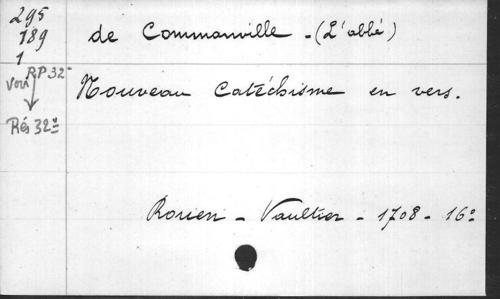 295
789
1
de Commanville - (L'abbé)
Voir RP 32-
Rés 32º
Nouveau Catéchisme en vers.
Rouen - Vaultier - 1708 - 16º